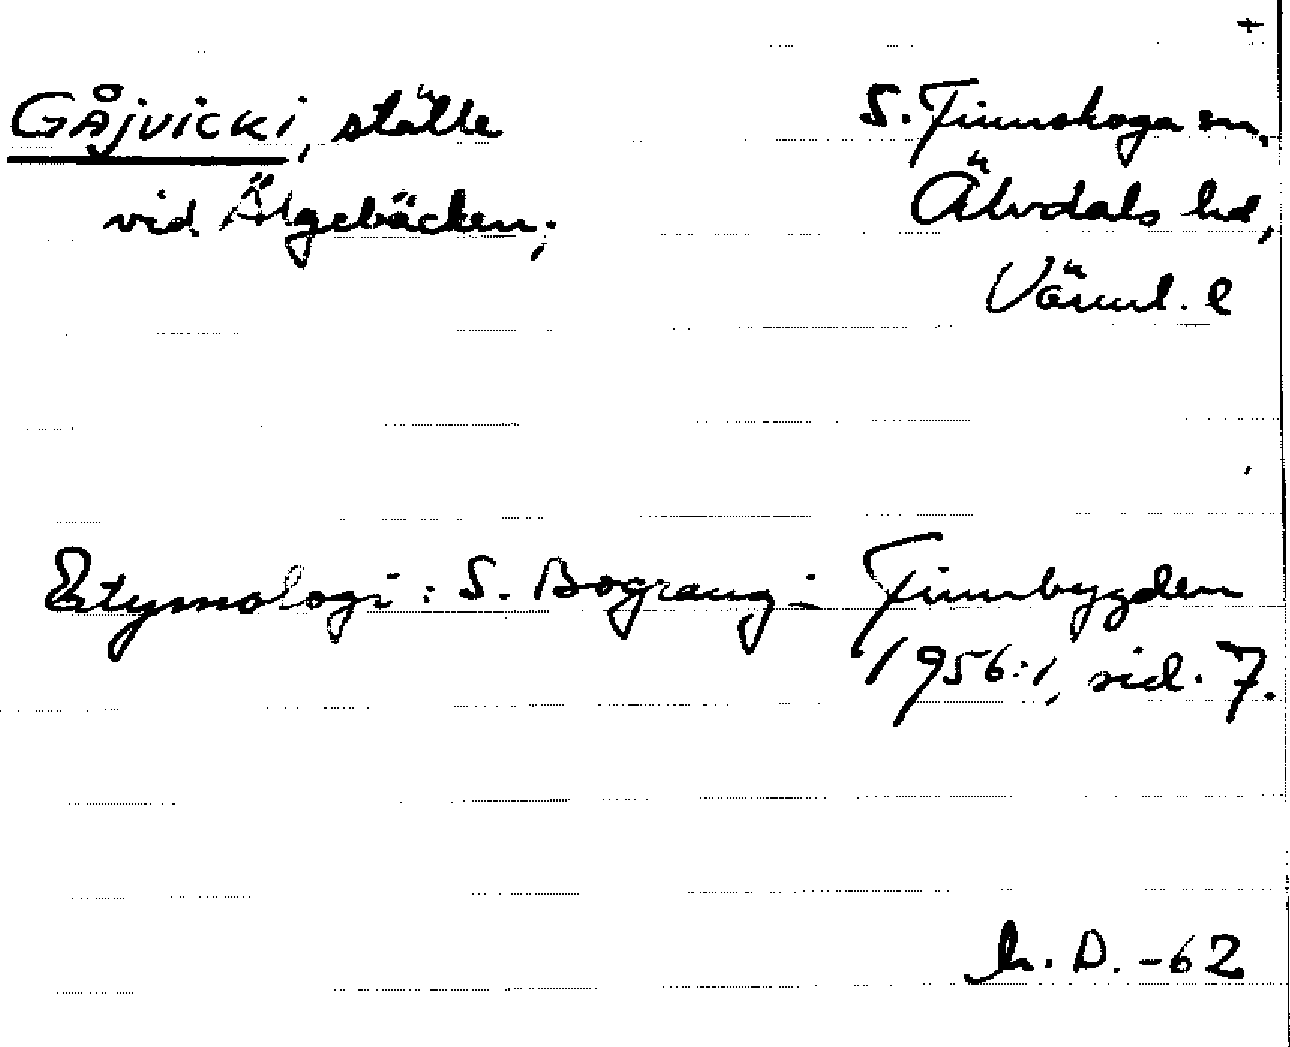 +
GÅJVICKI, ställe
vid Älgebäcken;
S. Finnskoga sn,
Älvdals hd,
Värml. l
Etymologi: S. Bograng i Finnbygden
1956:1, sid. 7.
D. -62